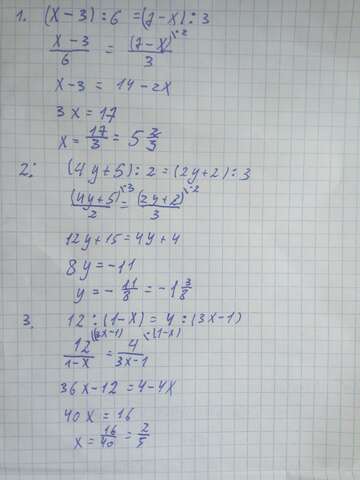 1. (x-3):6 = (7-x):3
x-3/6 = (7-x)\·2/3
x-3 = 14-2x
3x = 17
x = 17/3 = 5 2/3
2. (4y+5):2 = (2y+2):3
(4y+5)\·3/2 = (2y+2)\·2/3
12y+15 = 4y+4
8y = -11
y = - 11/8 = -1 3/8
3. 12:(1-x) = 4:(3x-1)
12\(3x-1)/1-x = 4\·(1-x)/3x-1
36x-12 = 4-4x
40x = 16
x = 16/40 = 2/5